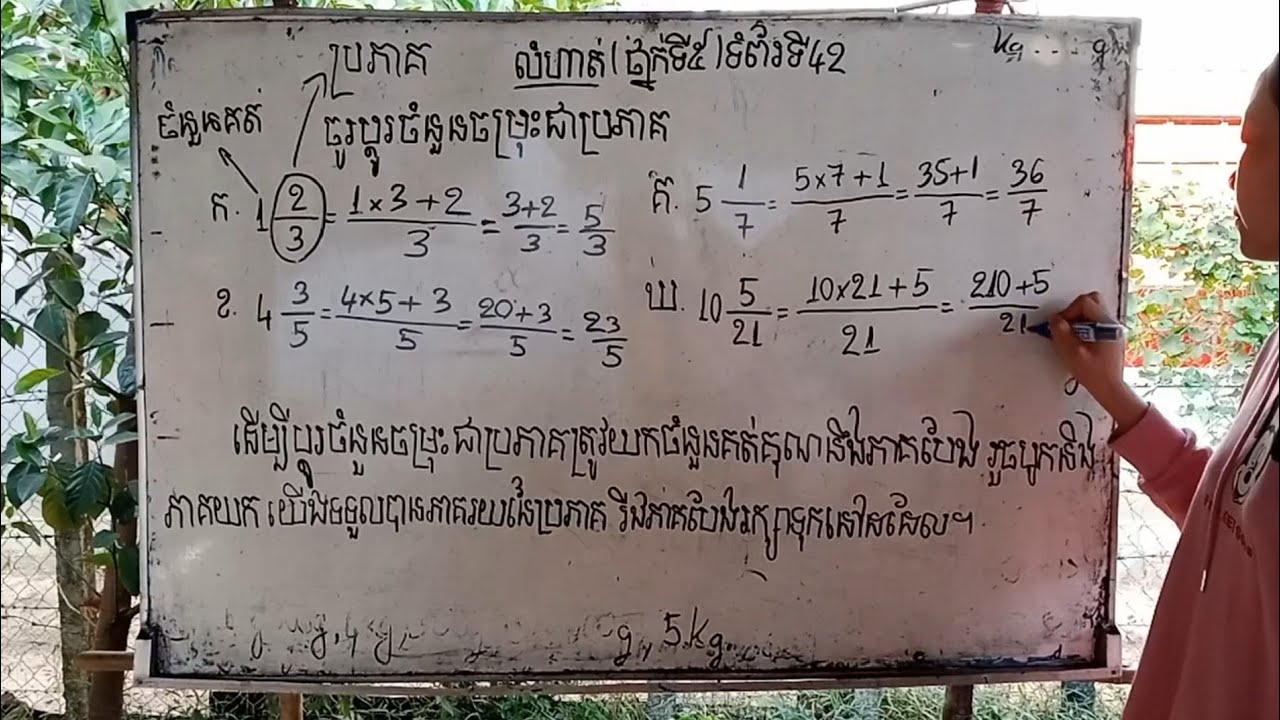 ប្រភាគ លំហាត់ (ផ្នែកទី៥) ទំព័រទី42 Kg g
ចំនួនគត់ ចូរប្តូរចំនួនចម្រុះជាប្រភាគ
ក. 1 2/3 = (1×3+2)/3 = (3+2)/3 = 5/3
គ. 5 1/7 = (5×7+1)/7 = (35+1)/7 = 36/7
ខ. 4 3/5 = (4×5+3)/5 = (20+3)/5 = 23/5
ឃ. 10 5/21 = (10×21+5)/21 = (210+5)/21
ដើម្បីប្តូរចំនួនចម្រុះជាប្រភាគត្រូវយកចំនួនគត់គុណនឹងភាគបែង រួចបូកនឹង
ភាគយក យើងទទួលបានភាគរយនៃប្រភាគ រីឯភាគបែងរក្សាទុកនៅដដែល។
g, 5Kg